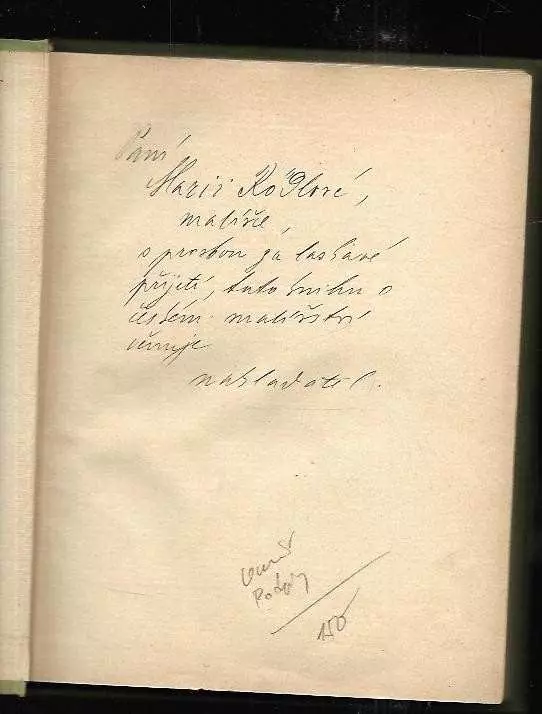 Paní
Marii Rödlové,
malířce,
s prosbou za laskavé
přijetí, tuto knihu o
českém malířství
věnuje
nakladatel.
150